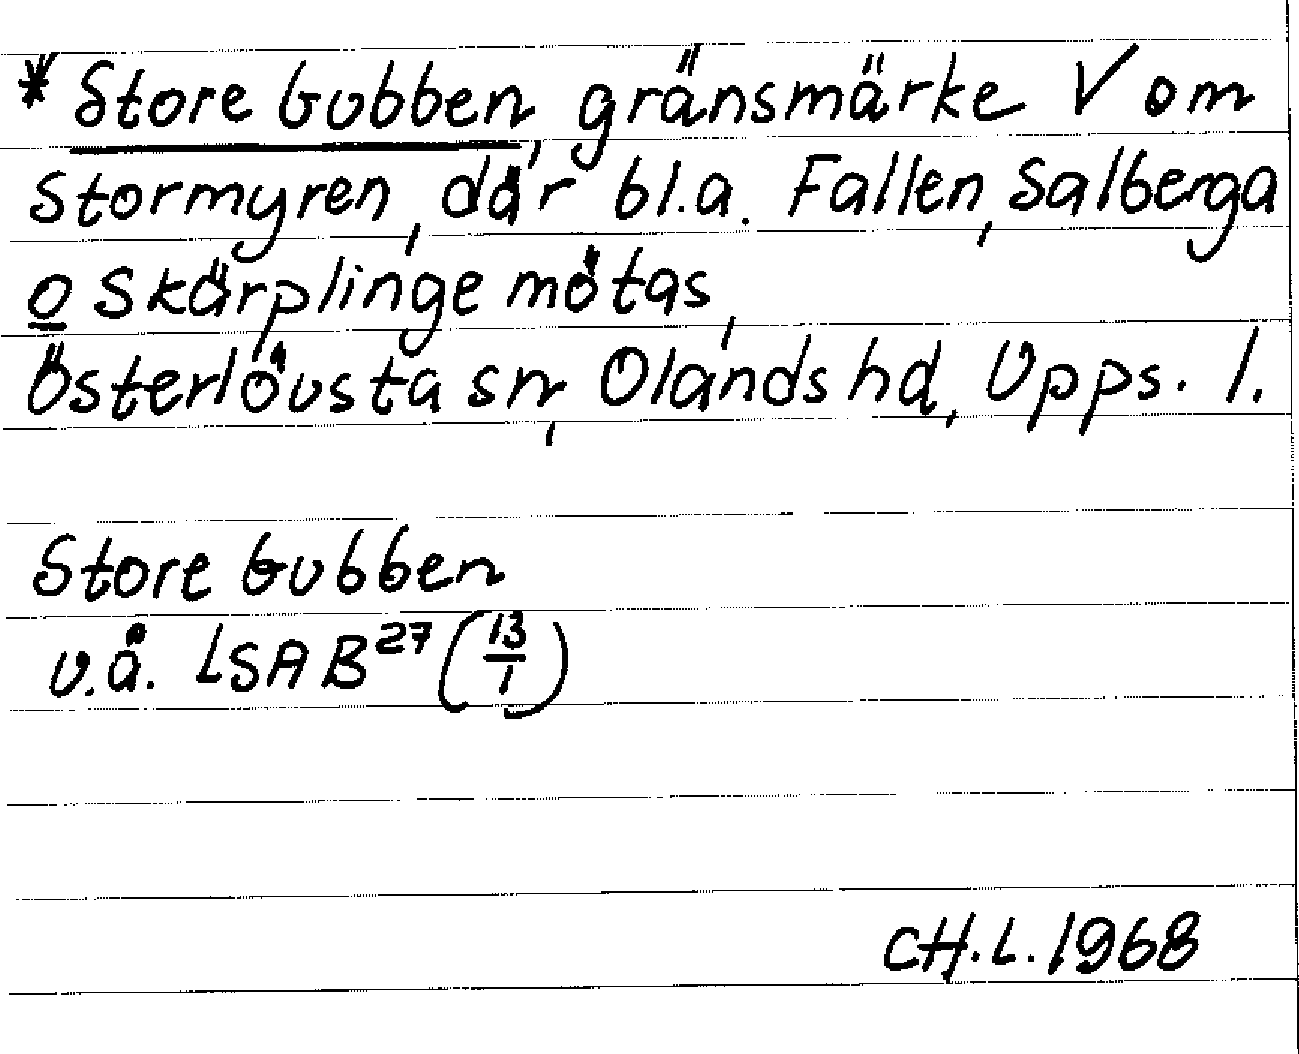 * Store Gubben, gränsmärke V om
Stormyren, där bl.a. Fallen, Salberga
o Skärplinge mötas,
Österlövsta sn, Olands hd, Upps. l.
Store Gubben
v.å. LSA B27 (13/1)
CH.L. 1968